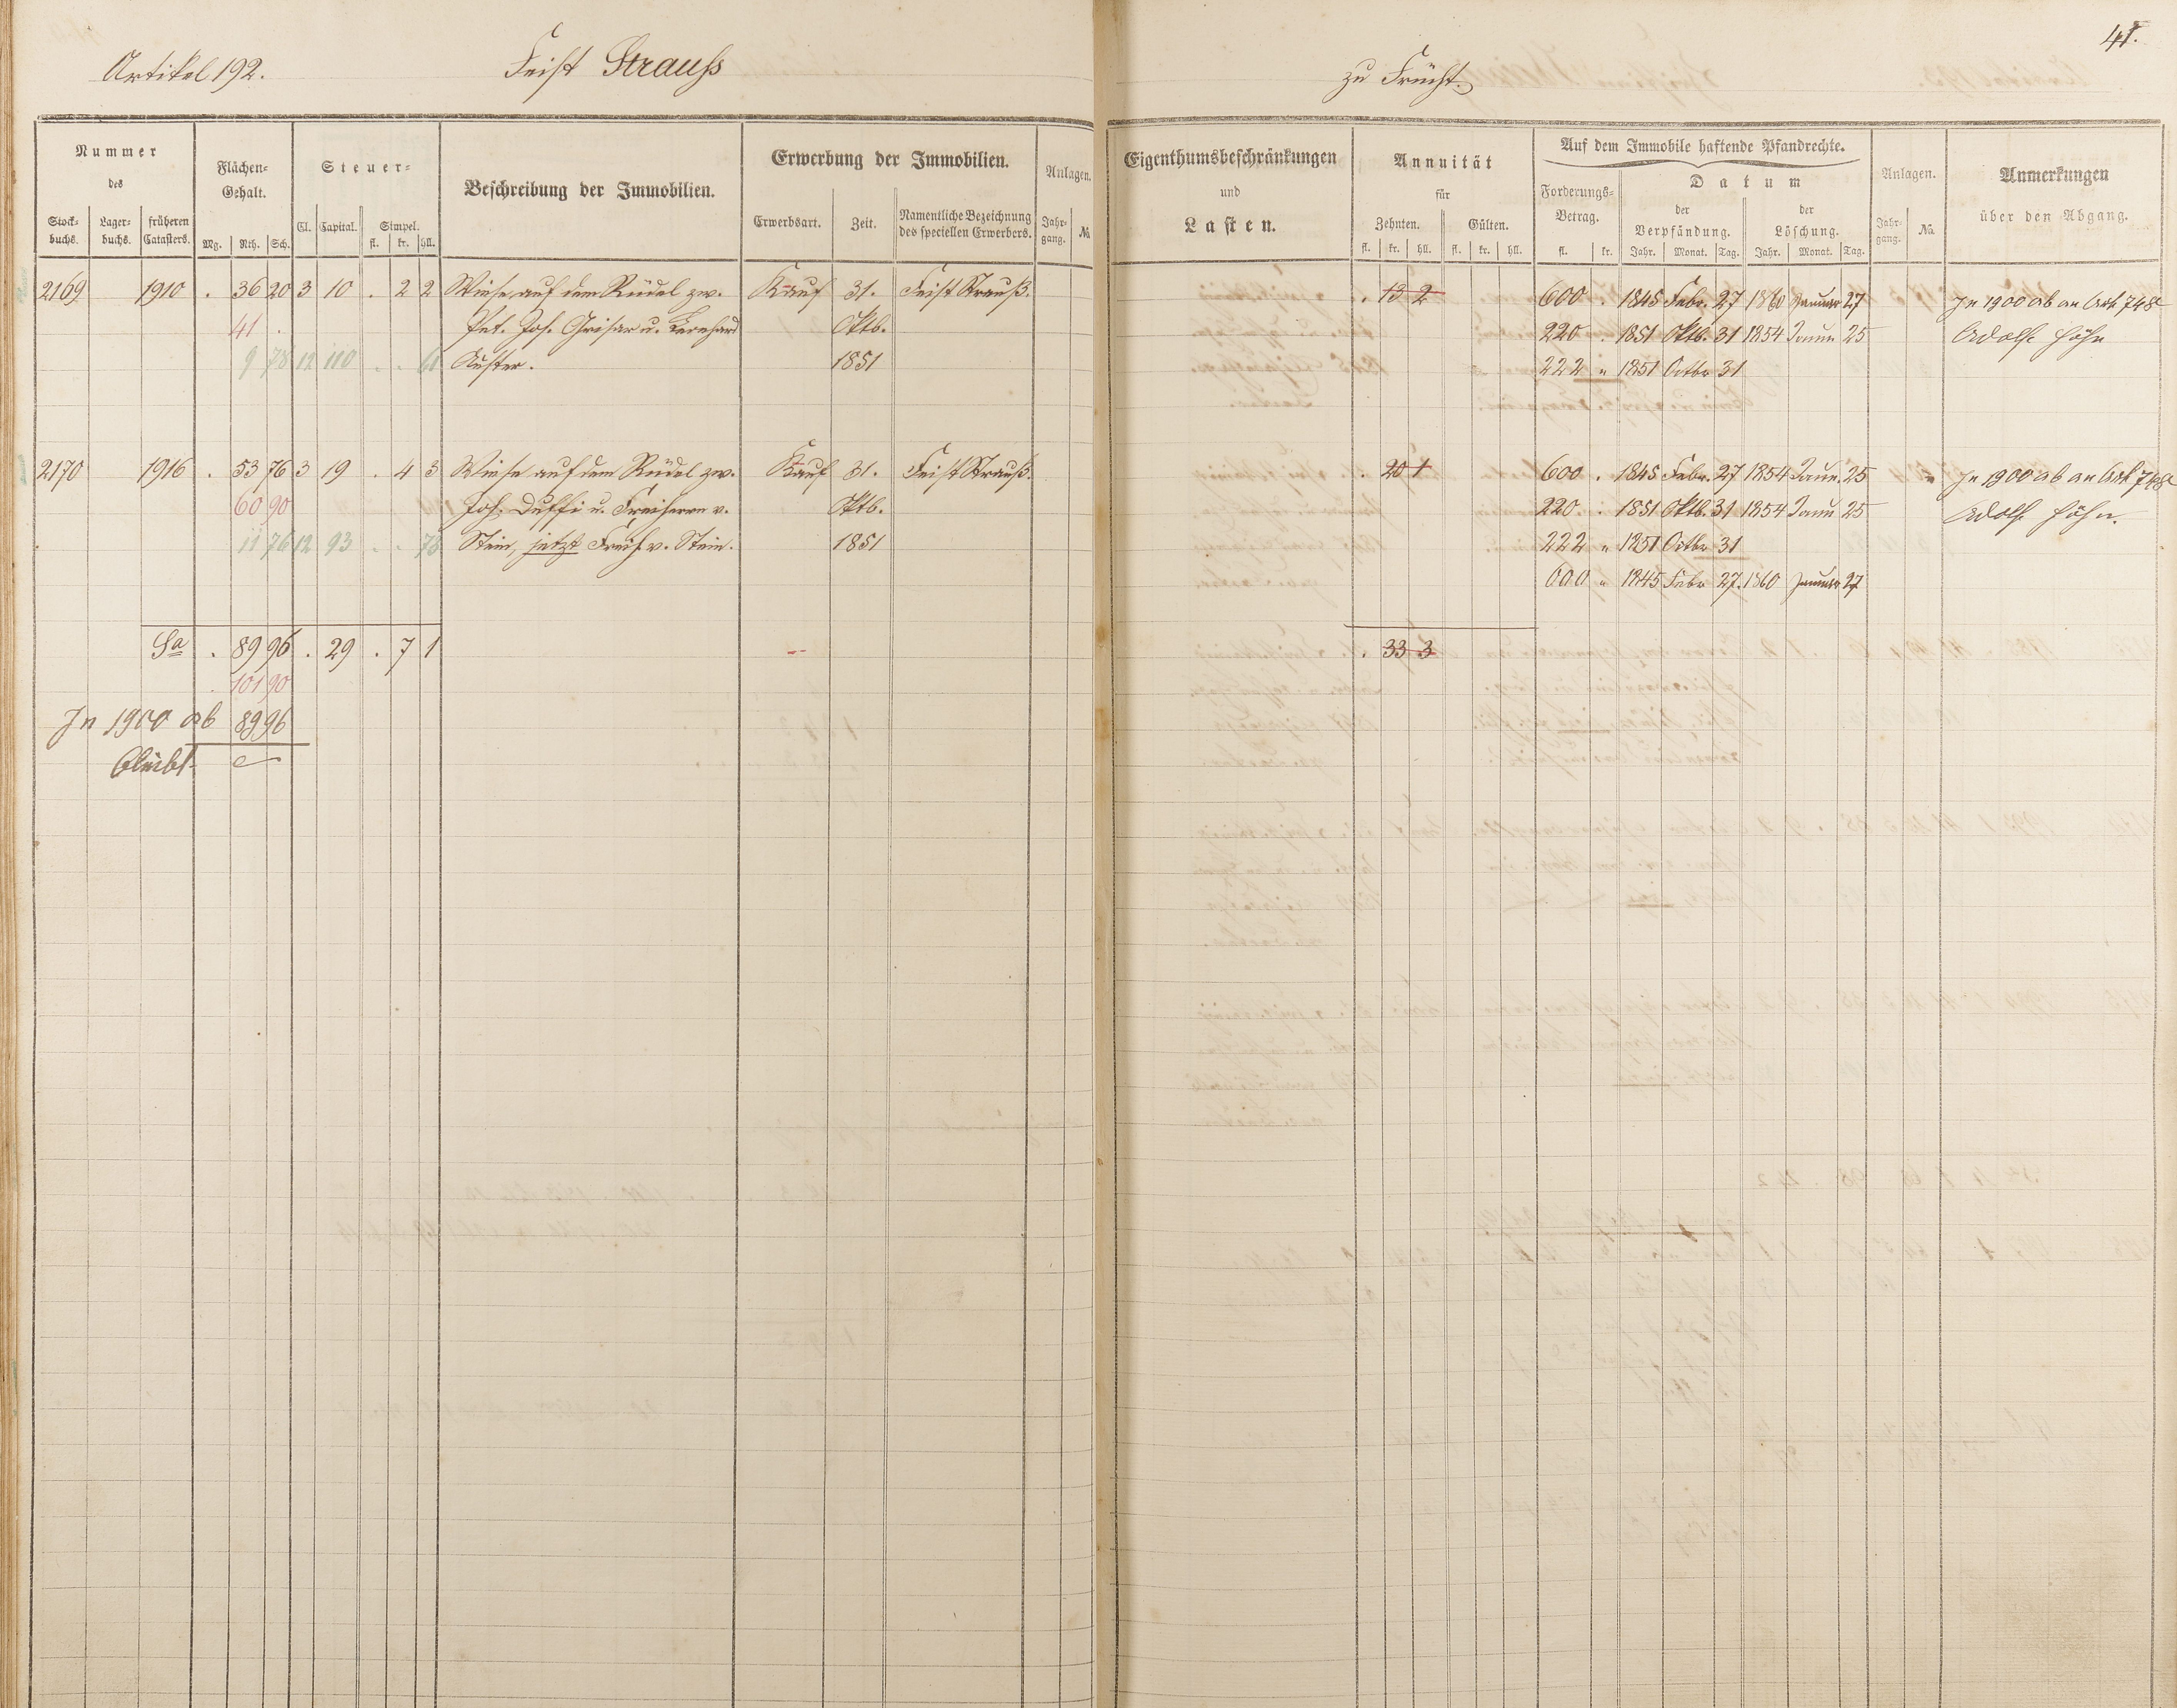 41.
Artikel 192. Feist Strauss zu Frücht.
Nummer des
Stock-buchs. Lager-buchs. früheren Catasters.
Flächen-Gehalt.
Mg. Rth. Sch.
Steuer-
Cl. Capital. Simpel.
fl. kr. hll.
Beschreibung der Immobilien.
Erwerbung der Immobilien.
Erwerbsart. Zeit. Namentliche Bezeichnung des speciellen Erwerbers.
Anlagen.
Jahr-gang. No.
Eigenthumsbeschränkungen
und
Lasten.
Annuität
für
Zehnten. Gülten.
fl. kr. hll. fl. kr. hll.
Auf dem Immobile haftende Pfandrechte.
Forderungs-Betrag.
fl. kr.
Datum
der Verpfändung. der Löschung.
Jahr. Monat. Tag. Jahr. Monat. Tag.
Anlagen.
Jahr-gang. No.
Anmerkungen
über den Abgang.
2169 1910 . 36 20 3 10 . 2 2 Wiese auf dem Rüdel zw. Kauf 31. Feist Strauß. . 13 2 600 . 1845 Febr. 27 1860 Januar 27 In 1900 ab an Art. 748
41 . Pet. Jos. Grisar u. Leonhard Oktb. 220 . 1851 Oktb. 31 1854 Januar 25 Adolf Höhn
9 78 12 110 . . 61 Auster. 1851 222 " 1851 Octbr 31
2170 1916 . 53 76 3 19 . 4 3 Wiese auf dem Rüdel zw. Kauf 31. Feist Strauß. . 20 1 600 . 1845 Febr. 27 1854 Janu. 25 In 1900 ab an Art. 748
60 90 Joh. Duffi u. Freiherrn v. Oktb. 220 . 1851 Oktb. 31 1854 Janu 25 Adolf Höhn.
11 76 12 93 . . 73 Stein, jetzt Freih. v. Stein. 1851 222 " 1851 Octbr 31
600 " 1845 Febr 27. 1860 Januar 27
Sa . 89 96 . 29 . 7 1 . 33 3
101 90
In 1900 ab 89 96
bleibt